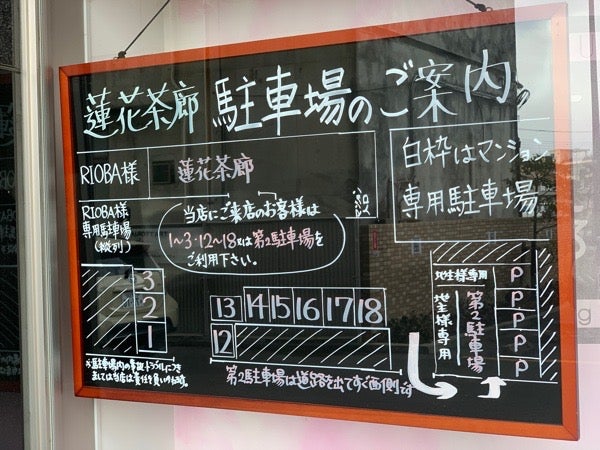 蓮花茶廊 駐車場のご案内
RIOBA様
蓮花茶廊
白枠はマンション
専用駐車場
RIOBA様
専用駐車場
(縦列)
当店にご来店のお客様は
1～3・12～18又は第2駐車場を
ご利用下さい。
3
2
1
13 14 15 16 17 18
12
地主様専用
地主様専用
第2駐車場
P
P
P
P
P
※駐車場内の事故・トラブルにつき
ましては当店は責任を負いかねます。
第2駐車場は道路を出てすぐ西側です